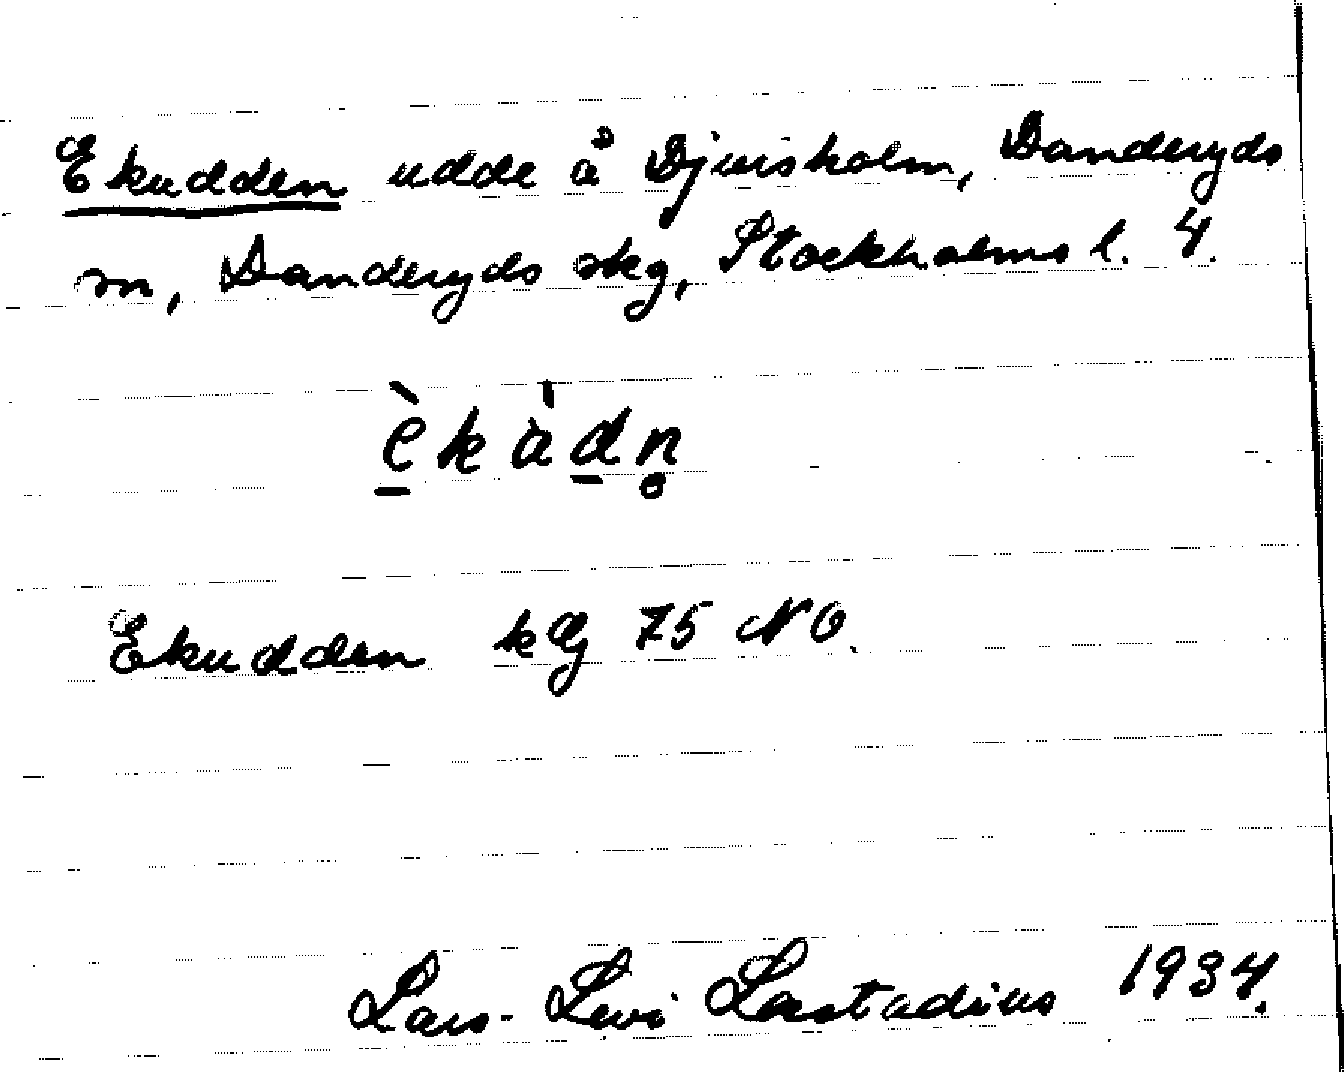 Ekudden udde å Djursholm, Danderyds
sn, Danderyds skg, Stockholms l. 4.
è̱kàḏn̥
Ekudden kG 75 NO.
Lars-Levi Læstadius 1934.